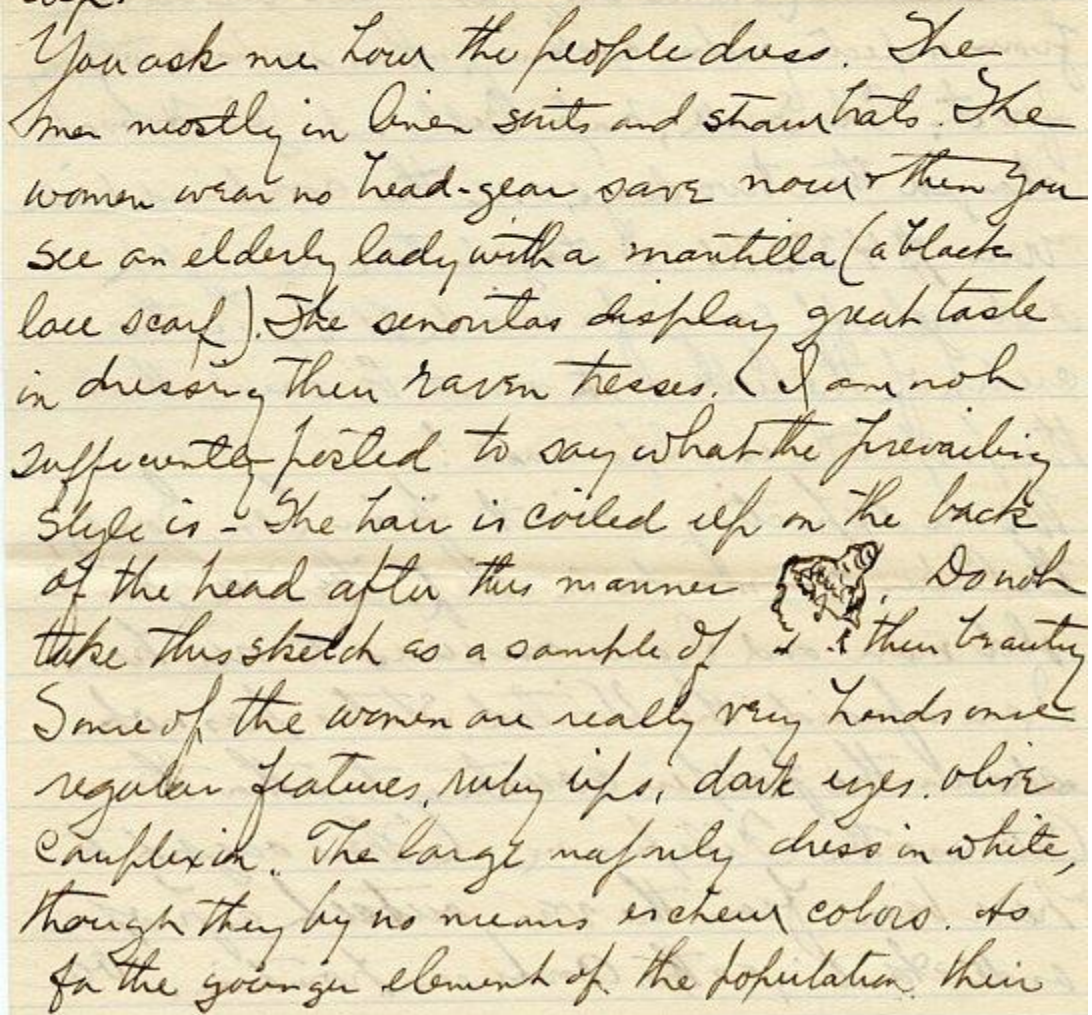 You ask me how the people dress. The
men mostly in linen suits and straw hats. The
women wear no head-gear save now & then you
see an elderly lady with a mantilla (a black
lace scarf). The senoritas display great taste
in dressing their raven tresses. (I am not
sufficiently posted to say what the prevailing
style is - The hair is coiled up on the back
of the head after this manner . Do not
take this sketch as a sample of their beauty
Some of the women are really very handsome
regular features, ruby lips, dark eyes. olive
complexion. The large majority dress in white,
though they by no means eschew colors. As
for the younger element of the population their